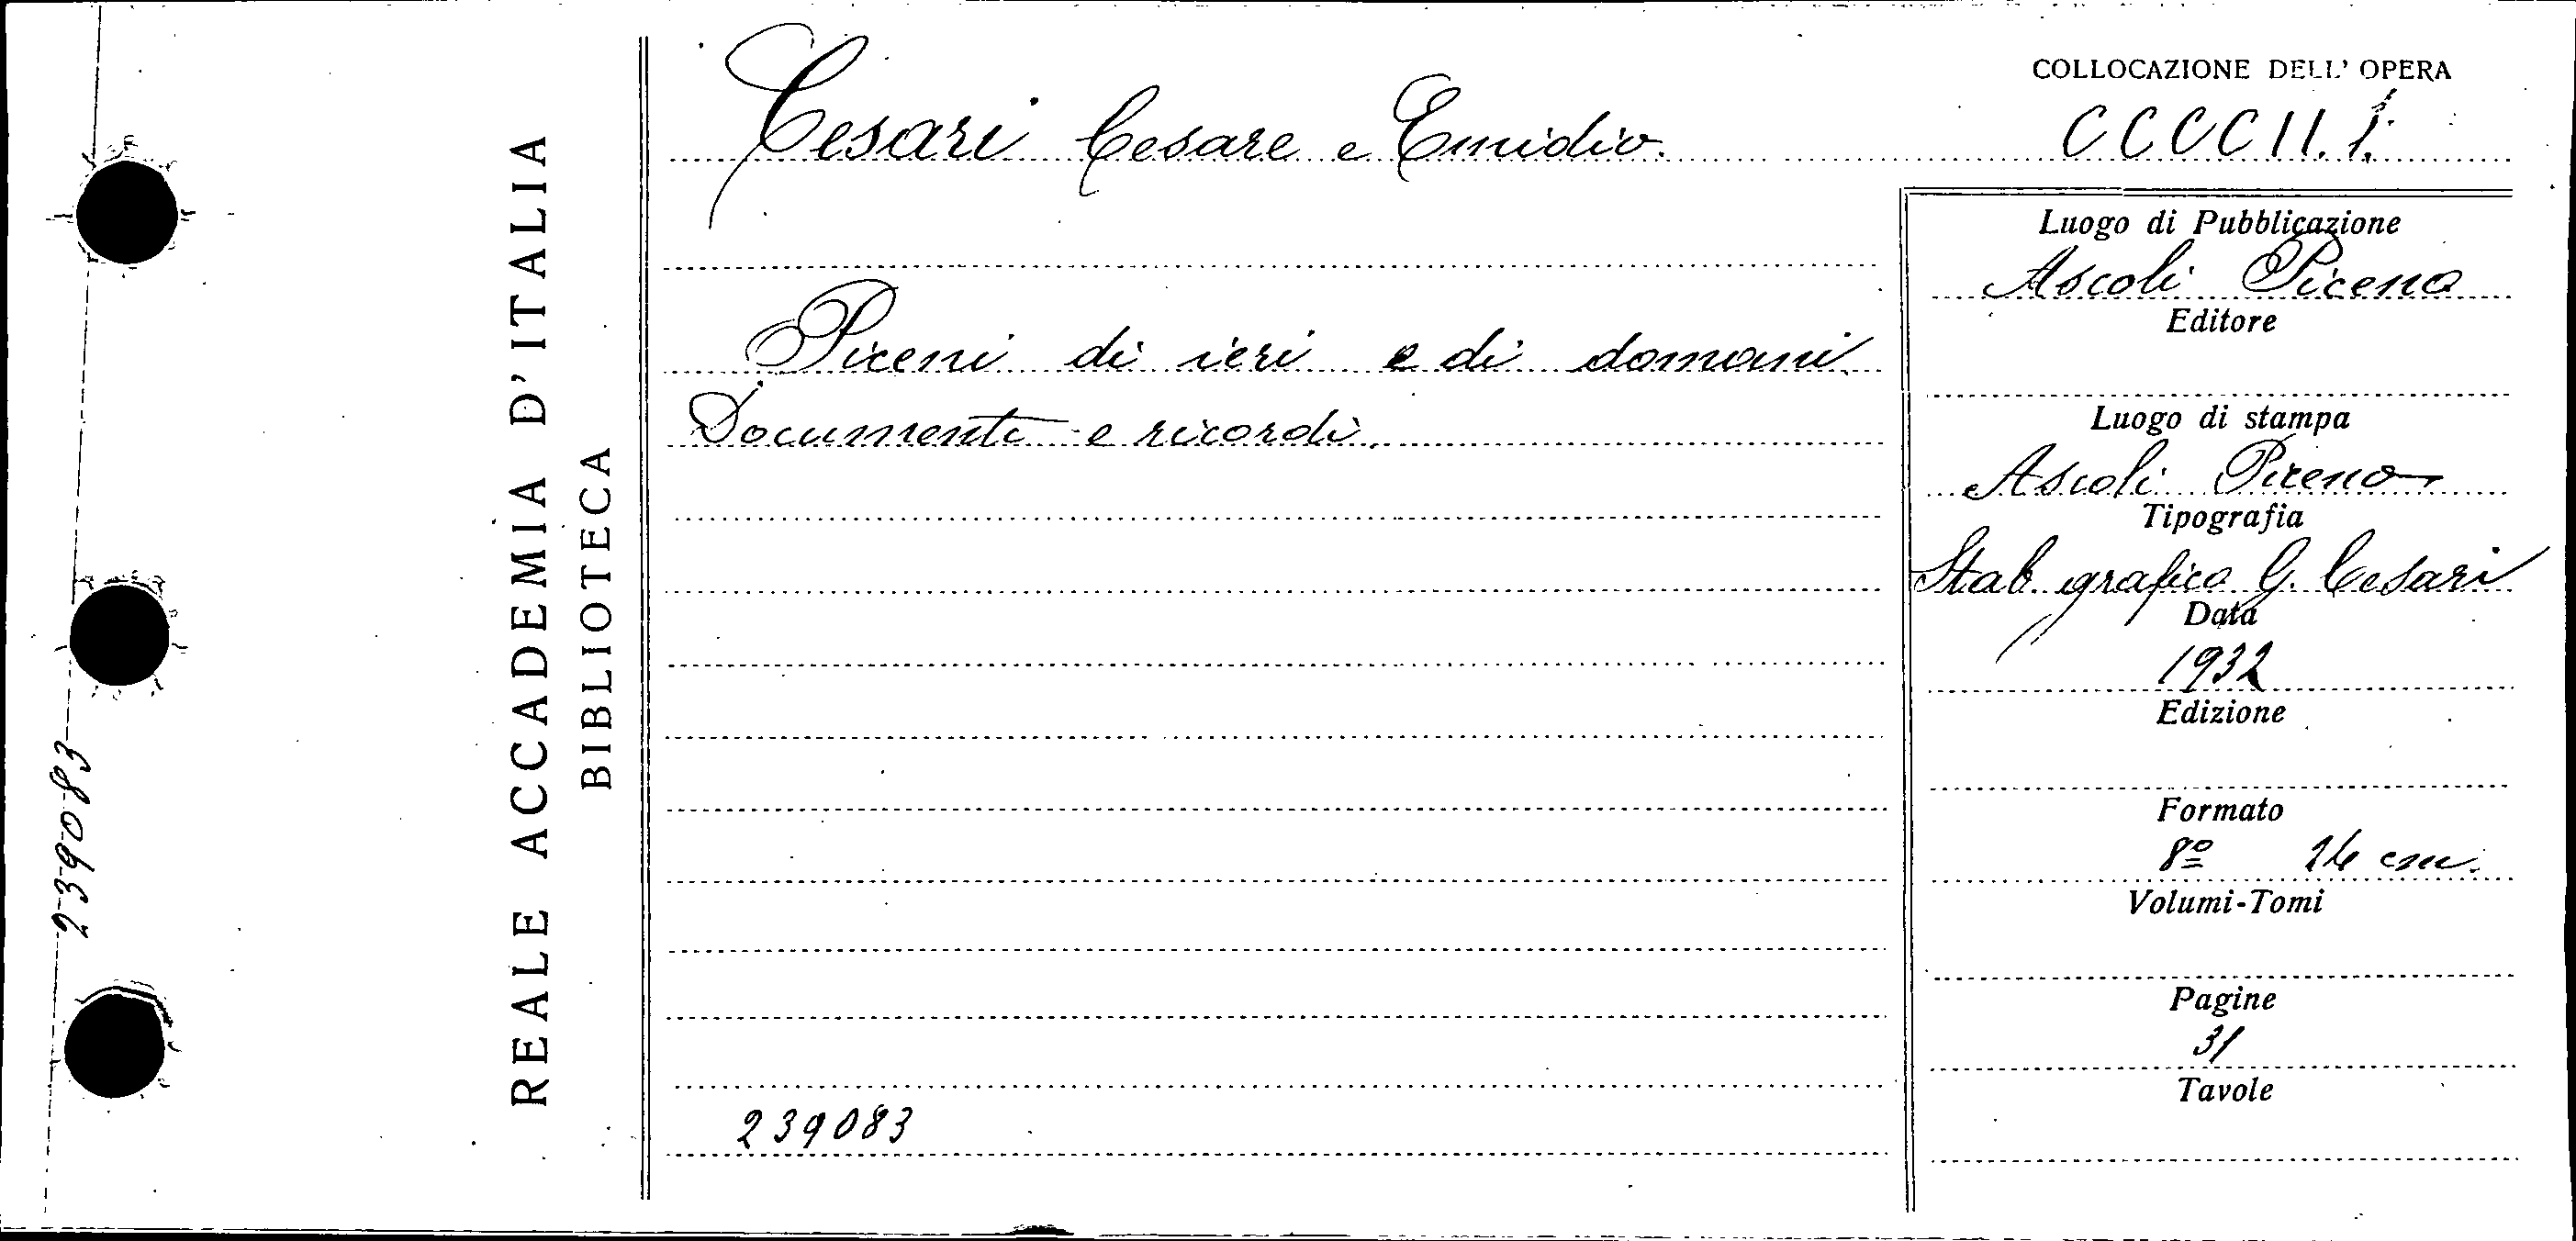 239083
REALE ACCADEMIA D'ITALIA
BIBLIOTECA
Cesari Cesare e Emidio.
Piceni di ieri e di domani.
Documenti e ricordi.
239083
COLLOCAZIONE DELL' OPERA
CCCCII.1.
Luogo di Pubblicazione
Ascoli Piceno
Editore
Luogo di stampa
Ascoli Piceno
Tipografia
Stab. grafico G. Cesari
Data
1932
Edizione
Formato
8º cm.
Volumi-Tomi
Pagine
31
Tavole